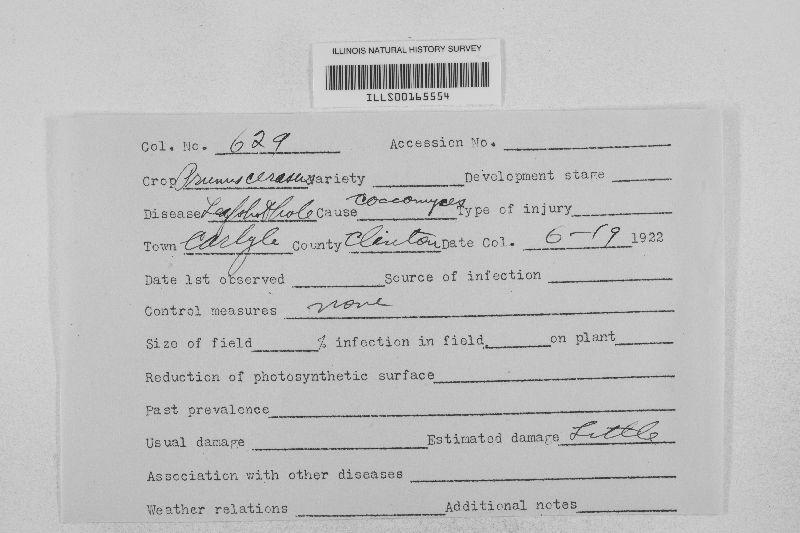 ILLINOIS NATURAL HISTORY SURVEY
ILLS00165554
Col. No. 629 Accession No.
Crop Prunus cerasus Variety Development stage
Disease Leafshothole Cause coccomyces Type of injury
Town Carlyle County Clinton Date Col. 6-19 1922
Date 1st observed Source of infection
Control measures none
Size of field % infection in field on plant
Reduction of photosynthetic surface
Past prevalence
Usual damage Estimated damage Little
Association with other diseases
Weather relations Additional notes